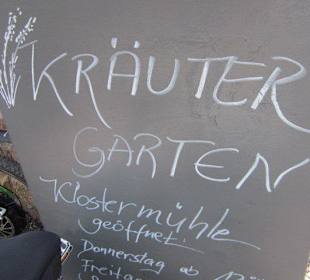 KRÄUTER
GARTEN
Klostermühle
geöffnet:
Donnerstag ab
Freitag